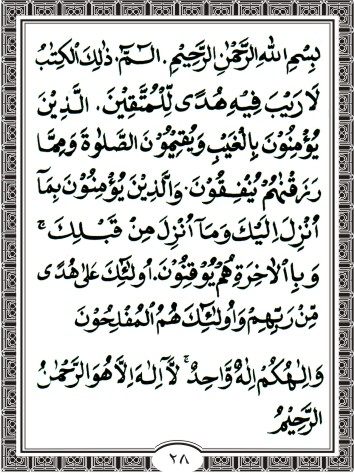 بِسْمِ اللهِ الرَّحْمٰنِ الرَّحِيْمِ. الٓـمّٓ. ذٰلِكَ الْكِتٰبُ
لَا رَيْبَ فِيْهِ هُدًى لِّلْمُتَّقِيْنَ. الَّذِيْنَ
يُؤْمِنُوْنَ بِالْغَيْبِ وَيُقِيْمُوْنَ الصَّلٰوةَ وَمِمَّا
رَزَقْنٰهُمْ يُنْفِقُوْنَ. وَالَّذِيْنَ يُؤْمِنُوْنَ بِمَا
اُنْزِلَ اِلَيْكَ وَمَآ اُنْزِلَ مِنْ قَبْلِكَ ۚ
وَبِالْاٰخِرَةِ هُمْ يُوْقِنُوْنَ. اُولٰٓئِكَ عَلٰى هُدًى
مِّنْ رَبِّهِمْ وَاُولٰٓئِكَ هُمُ الْمُفْلِحُوْنَ
وَاِلٰهُكُمْ اِلٰهٌ وَّاحِدٌ ۚ لَآ اِلٰهَ اِلَّا هُوَ الرَّحْمٰنُ
الرَّحِيْمُ
٢٨